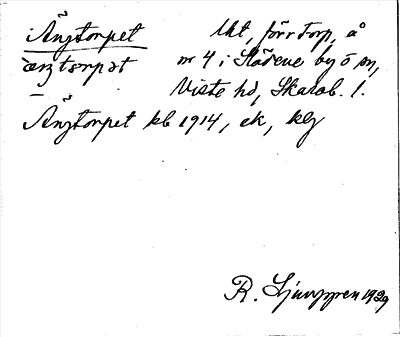 Ängtorpet lht, förr torp, å
æŋtɔrpət nr 4 i Slädene by o sn,
Viste hd, Skarab. l.
Ängtorpet kb 1914, ek, klg
R. Ljunggren 1929